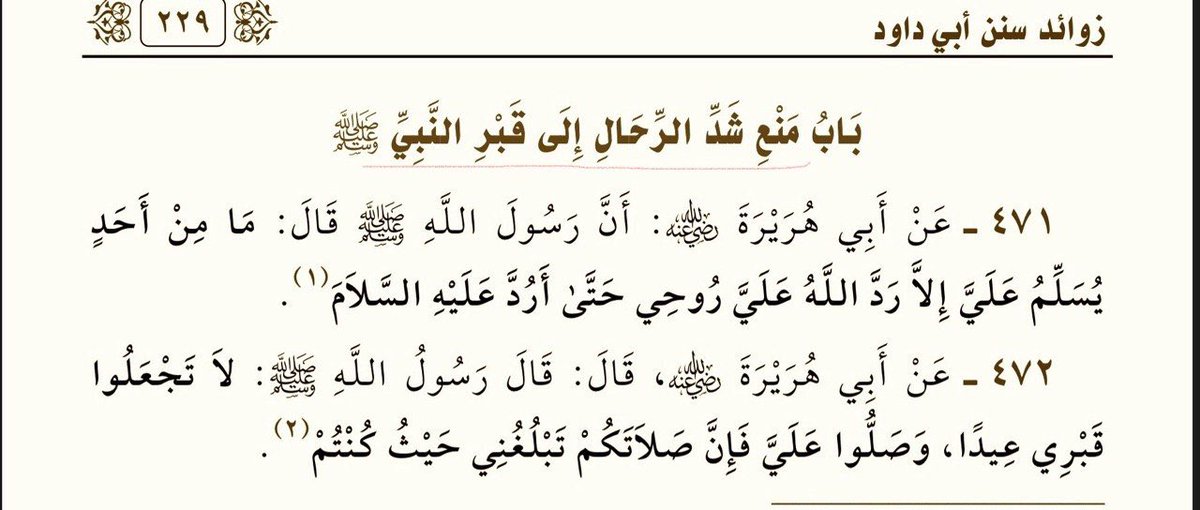 زوائد سنن أبي داود ٢٢٩
بَابُ مَنْعِ شَدِّ الرِّحَالِ إِلَى قَبْرِ النَّبِيِّ ﷺ
٤٧١ ـ عَنْ أَبِي هُرَيْرَةَ رضي الله عنه: أَنَّ رَسُولَ اللَّهِ ﷺ قَالَ: مَا مِنْ أَحَدٍ
يُسَلِّمُ عَلَيَّ إِلاَّ رَدَّ اللَّهُ عَلَيَّ رُوحِي حَتَّىٰ أَرُدَّ عَلَيْهِ السَّلاَمَ(١).
٤٧٢ ـ عَنْ أَبِي هُرَيْرَةَ رضي الله عنه، قَالَ: قَالَ رَسُولُ اللَّهِ ﷺ: لاَ تَجْعَلُوا
قَبْرِي عِيدًا، وَصَلُّوا عَلَيَّ فَإِنَّ صَلاَتَكُمْ تَبْلُغُنِي حَيْثُ كُنْتُمْ(٢).